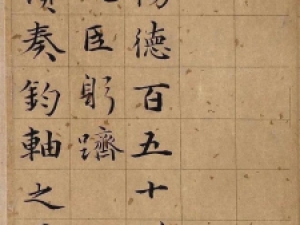 德百五十
臣躬躋
奏鈞軸之